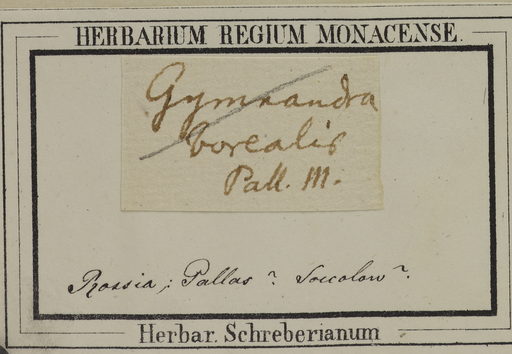 HERBARIUM REGIUM MONACENSE.
Gymnandra
borealis
Pall. M.
Rossia; Pallas? Soccolow?.
Herbar. Schreberianum